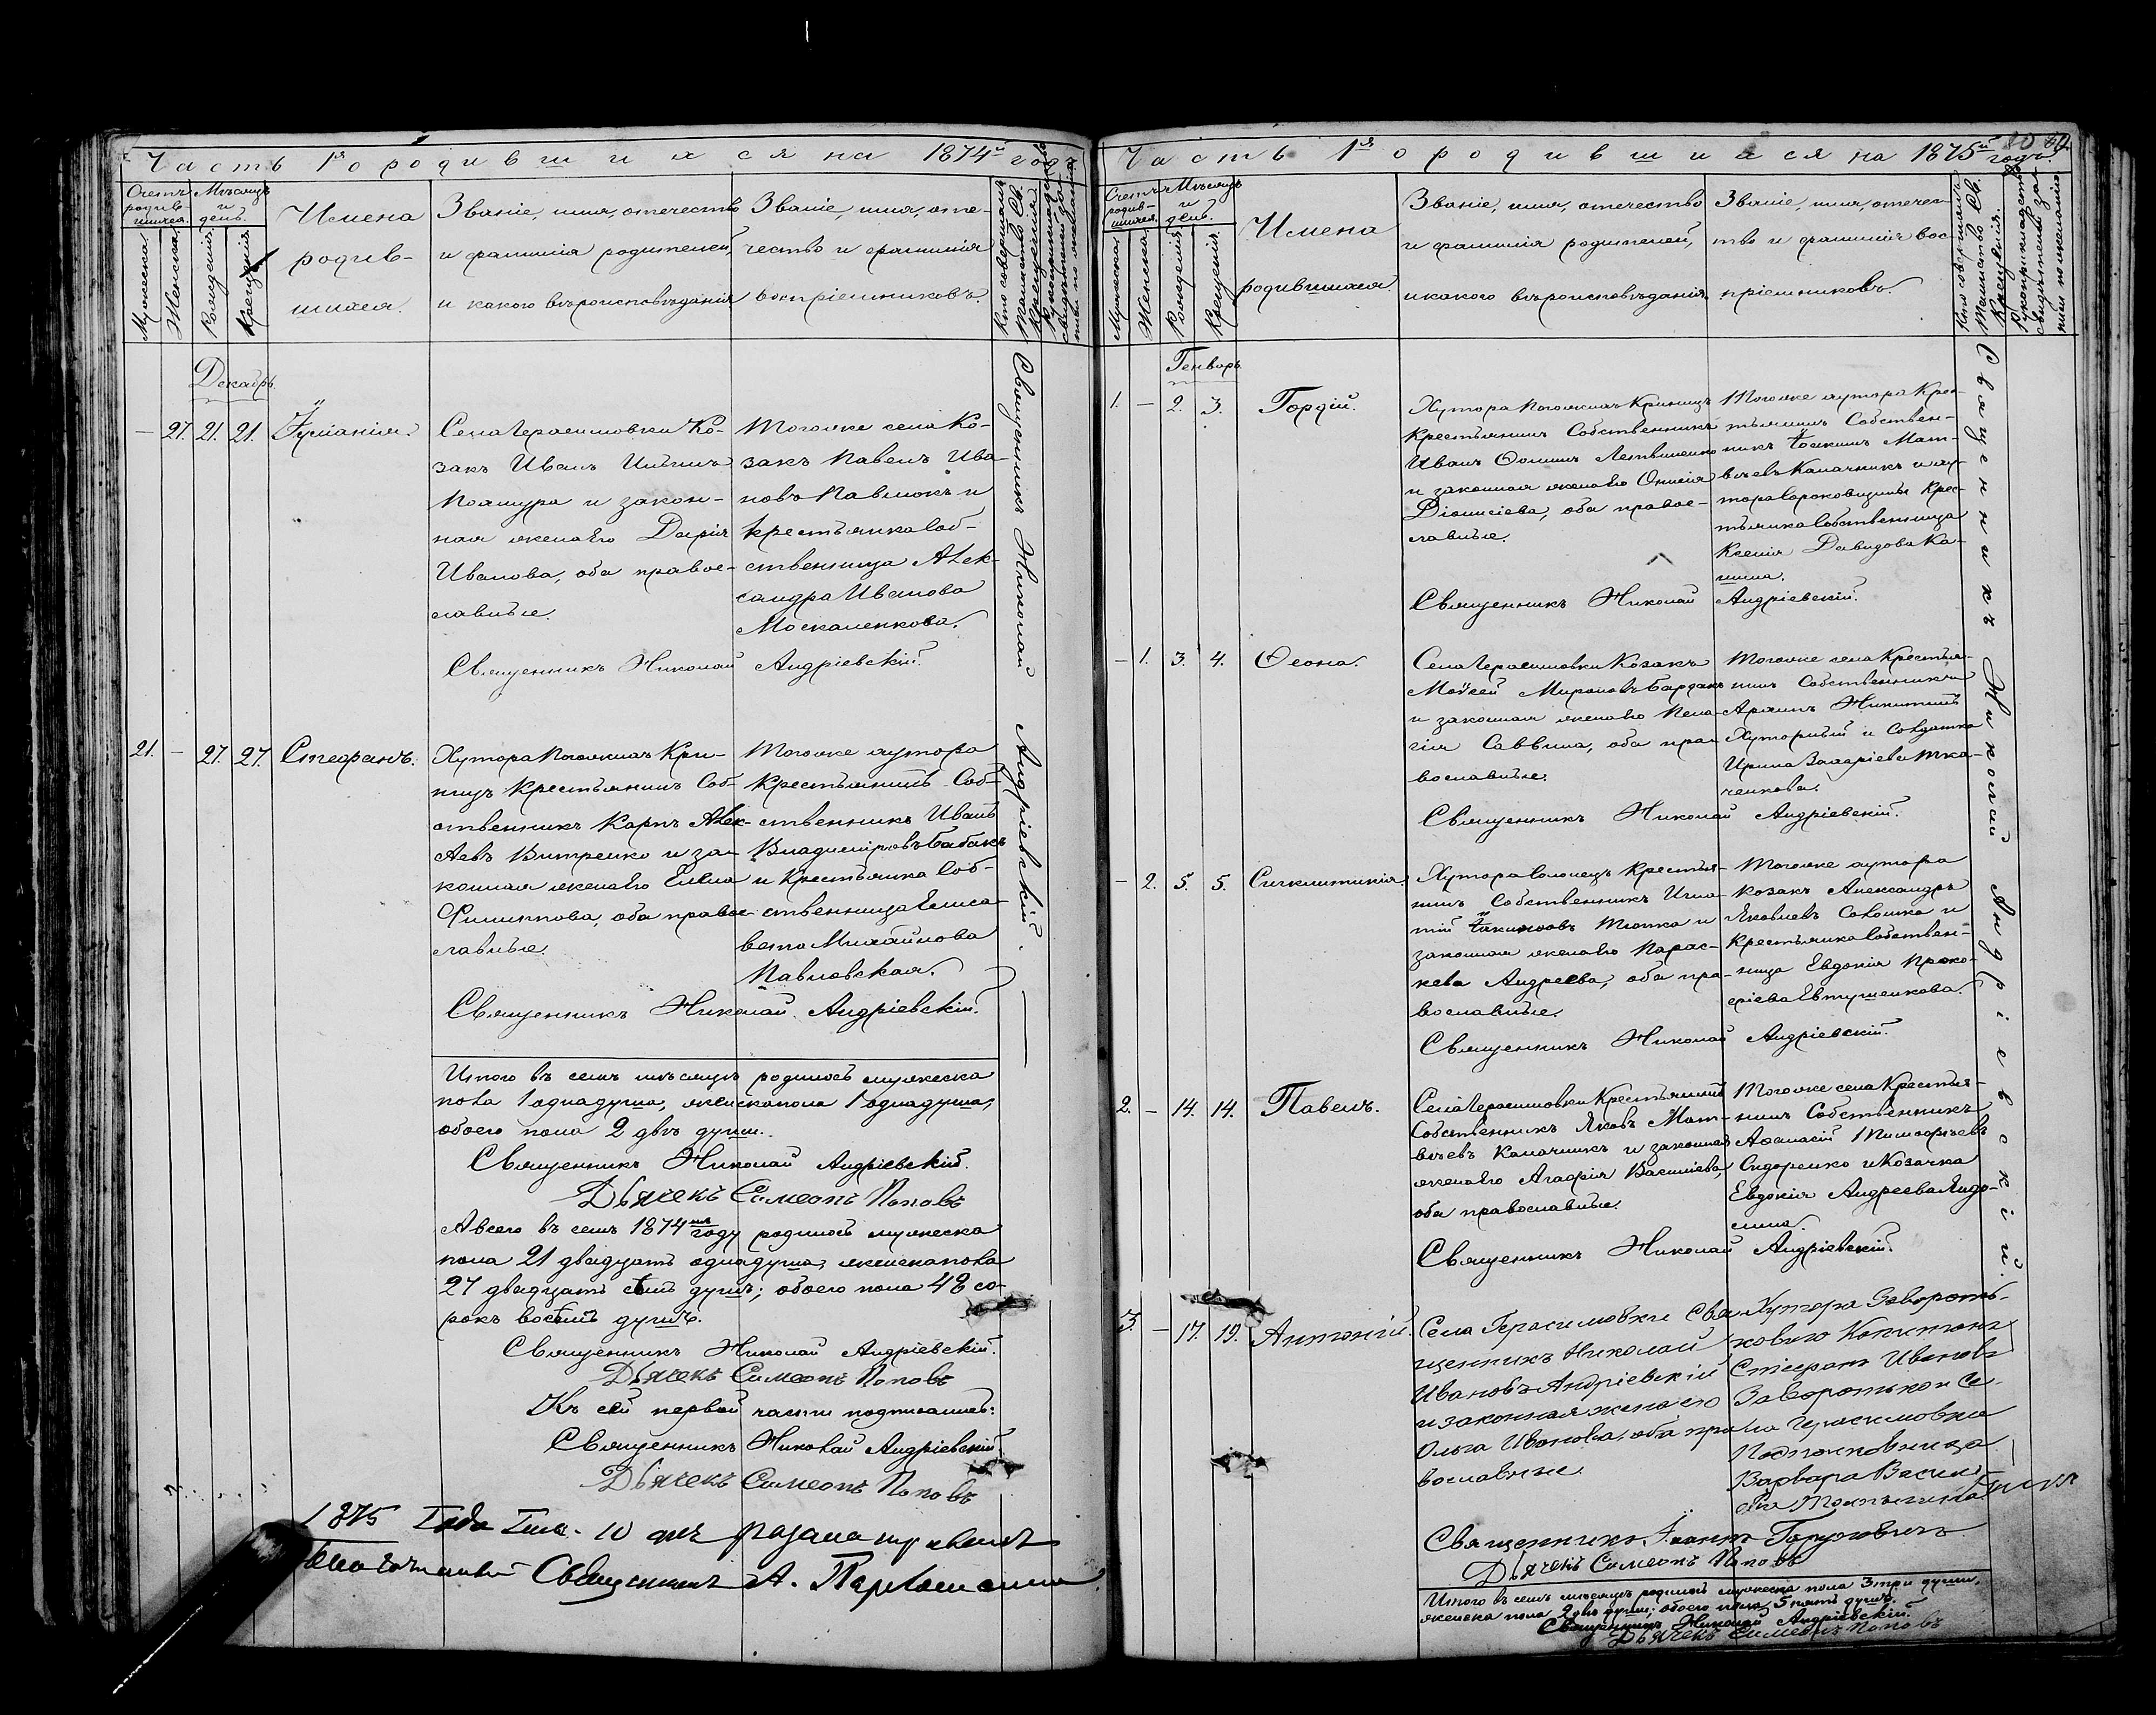 Часть 1я о родившихся на 1874й годъ
Счетъ родив-
шихся.
Мѣсяцъ
и
день.
Мужеска
Женска
Рожденія
Крещенія
Имена
родив-
шихся.
Званіе, имя, отечество
и фамилія родителей,
и какого вѣроисповѣданія
Званіе, имя, оте-
чество и фамилія
воспріемниковъ.
Кто совершалъ
таинство Св.
Крещенія
Декабрь.
— 27. 21. 21. Іуліанія.
Села Герасимовки Ко-
закъ Иванъ Ильинъ
Пожура и закон-
ная жена его Дарія
Иванова, оба право-
славные.
Тогоже села Ко-
закъ Павелъ Ива-
новъ Павлюкъ и
крестьянка Соб-
ственница Алек-
сандра Иванова
Москаленкова.
Священникъ Николай Андріевскій.
21. — 27. 27. Стефанъ.
Хутора Погожихъ Кри-
ницъ Крестьянинъ Соб-
ственникъ Карпъ Алек-
ѣевъ Витренко и за-
конная жена его Елена
Филиппова, оба право-
славные.
Тогоже хутора
Крестьянинъ Соб-
ственникъ Иванъ
Владиміровъ Бабакъ
и Крестьянка Соб-
ственница Елиса-
вета Михайлова
Павловская.
Священникъ Николай Андріевскій.
Священникъ Николай Андріевскій.
Итого въ семъ мѣсяцѣ родилось мужеска
пола 1 одна душа, женска пола 1 одна душа,
обоего пола 2 двѣ души.
Священникъ Николай Андріевскій.
Дьячекъ Симеонъ Поповъ
А всего въ семъ 1874мъ году родилось мужеска
пола 21 двадцать одна душа, женска пола
27 двадцать семь душъ; обоего пола 48 со-
рокъ восемь душъ.
Священникъ Николай Андріевскій.
Дьячекъ Симеонъ Поповъ
Къ сей первой части подписались:
Священникъ Николай Андріевскій.
Дьячекъ Симеонъ Поповъ
1875 Года Генв. 10 дня
Священникъ А.
Часть 1я о родившихся на 1875й годъ.
Счетъ
родив-
шихся.
Мѣсяцъ
и
день.
Мужеска
Женска
Рожденія
Крещенія
Имена
родившихся.
Званіе, имя, отечество
и фамилія родителей,
и какого вѣроисповѣданія.
Званіе, имя, отечес-
тво и фамилія вос-
пріемниковъ.
Кто совершалъ
Таинство Св.
Крещенія.
Рукоприкладство
свидѣтелей за-
писи по желанію.
Генварь
1. — 2. 3. Гордій.
Хутора Погожихъ Криницъ
Крестьянинъ Собственникъ
Иванъ Ѳоминъ
и законная жена его Онисія
Діонисіева, оба право-
славные.
Тогоже хутора Крес-
тьянинъ Собствен-
никъ Іоакимъ Мат-
вѣевъ Калачникъ и ху-
тора Сороковщины Крес-
тьянка Собственница
Ксенія Давидова Ка-
шина.
Священникъ Николай Андріевскій.
— 1. 3. 4. Ѳеона.
Села Герасимовки Козакъ
Моѵсей Мироновъ Бардакъ
и законная жена его Пела-
гія Саввина, оба пра-
вославные.
Тогоже села Крестья-
нинъ Собственникъ
Никитинъ
Хуторный и Солдатка
Ирина Валеріева Тка-
ченкова.
Священникъ Николай Андріевскій.
— 2. 5. 5. Сигклитикія.
Хутора Солонецъ Крестья-
нинъ Собственникъ Игна-
тій Іакимовъ Тютка и
законная жена его Парас-
кева Андреева, оба пра-
вославные.
Тогоже хутора
козакъ Александръ
Яковлевъ Соломка и
Крестьянка Собствен-
ница Евдокія Проко-
фіева Евтушенкова.
Священникъ Николай Андріевскій.
2. — 14. 14. Павелъ.
Села Герасимовки Крестьянинъ
Собственникъ Яковъ Мат-
вѣевъ Калачникъ и законная
жена его Агафія Василіева,
оба православные.
Тогоже села Крестья-
нинъ Собственникъ
Афанасій Тимофѣевъ
Сидоренко и Козачка
Евдокія Андреева

Священникъ Николай Андріевскій.
3. — 17. 19. Антоній.
Села Герасимовки Свя-
щенникъ Николай
Ивановъ Андріевскій
и законная жена его
Ольга Иванова, оба пра-
вославные.
Хутора Заворотъ-
кового Капитанъ
Стефанъ Ивановъ
Заворотько и Се-
ла Герасимовки
Подполковница
Варвара Васи

Священникъ Іоаннъ
Дьячекъ Симеонъ Поповъ
Священникъ Николай Андріевскій.
Итого въ семъ мѣсяцѣ родилось мужеска пола 3 три души,
женска пола 2 двѣ души; обоего пола 5 пять душъ.
Священникъ Николай Андріевскій.
Дьячекъ Симеонъ Поповъ